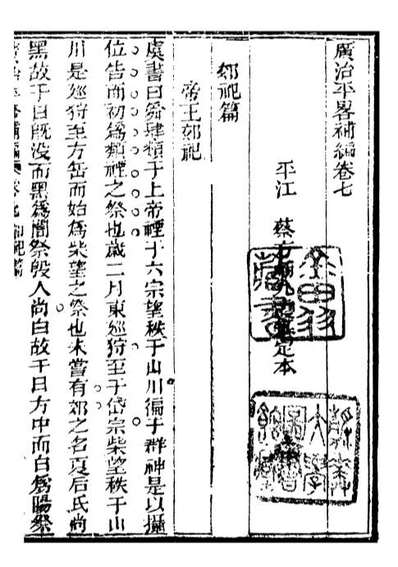 廣治平畧補編卷七
平江 蔡方九定本
郊祀篇
帝王郊祀
虞書曰舜肆類于上帝禋于六宗望秩于山川徧于群神是以攝
位告而初爲類禋之祭也歲二月東廵狩至于岱宗柴望秩于山
川是廵狩至方岳而始爲柴望之祭也未嘗有郊之名夏后氏尚
黑故于日既没而黑爲闇祭殷人尚白故于日方中而白爲陽祭